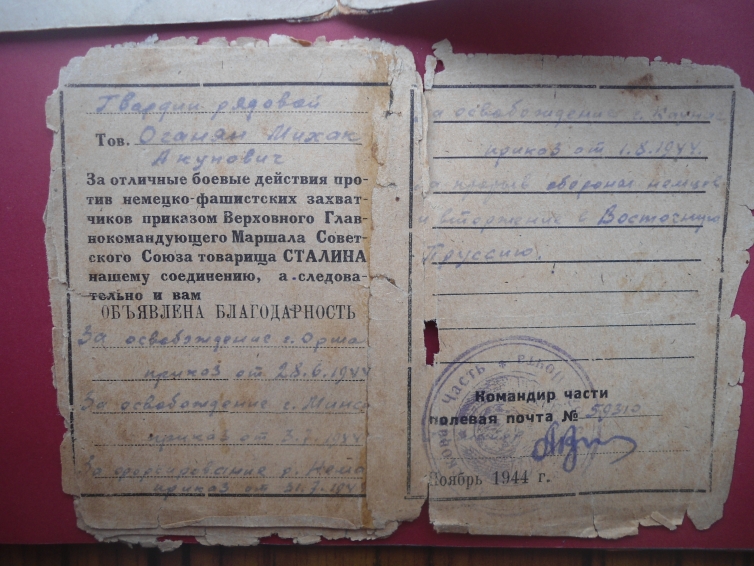 Гвардии рядовой
Тов. Осанян Михак
Акупович
За отличные боевые действия про-
тив немецко-фашистских захват-
чиков приказом Верховного Глав-
нокомандующего Маршала Совет-
ского Союза товарища СТАЛИНА
нашему соединению, а следова-
тельно и вам
ОБЪЯВЛЕНА БЛАГОДАРНОСТЬ
За освобождение г. Орша
приказ от 28.6.1944
За освобождение г. Минск
приказ от 3.7.1944
За форсирование р. Нема
приказ от 31.7.1944
за освобождение г. Каунас
приказ от 1.8.1944.
за прорыв обороны немцев
и вторжение в Восточную
Пруссию.
Командир части
полевая почта № 59310
Ноябрь 1944 г.
часть
почта